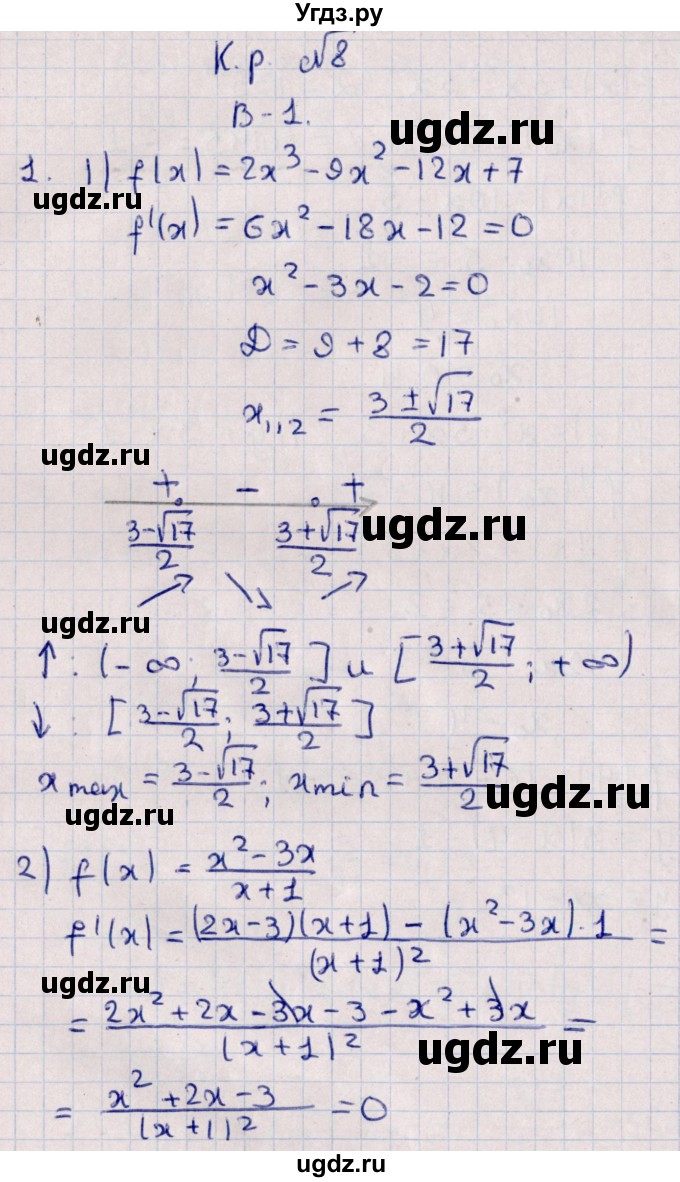 Угдз.ру
К.р. №8
В-1.
1. 1) f(x) = 2x³ - 9x² - 12x + 7
ugdz.ru
ugdz.ru
f'(x) = 6x² - 18x - 12 = 0
x² - 3x - 2 = 0
D = 9 + 8 = 17
x₁,₂ = (3 ± √17)/2
ugdz.ru
+ - +
(3-√17)/2 (3+√17)/2
ugdz.ru
ugdz.ru
↑: (-∞; (3-√17)/2] и [(3+√17)/2; +∞)
↓: [(3-√17)/2; (3+√17)/2]
x max = (3-√17)/2; x min = (3+√17)/2
ugdz.ru
ugdz.ru
2) f(x) = (x² - 3x)/(x + 1)
f'(x) = ((2x-3)(x+1) - (x²-3x)·1)/(x+1)² =
ugdz.ru
= (2x² + 2x - 3x - 3 - x² + 3x)/(x+1)² =
ugdz.ru
= (x² + 2x - 3)/(x+1)² = 0
ugdz.ru